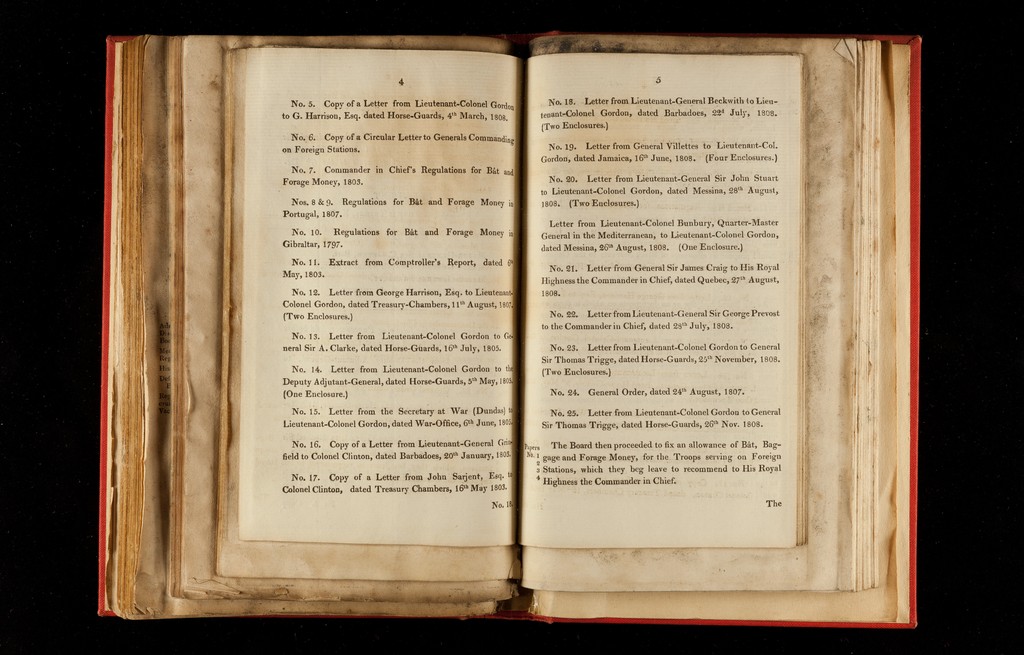 4
No. 5. Copy of a Letter from Lieutenant-Colonel Gordon
to G. Harrison, Esq. dated Horse-Guards, 4th March, 1808.
No. 6. Copy of a Circular Letter to Generals Commanding
on Foreign Stations.
No. 7. Commander in Chief's Regulations for Bât and
Forage Money, 1803.
Nos. 8 & 9. Regulations for Bât and Forage Money in
Portugal, 1807.
No. 10. Regulations for Bât and Forage Money in
Gibraltar, 1797.
No. 11. Extract from Comptroller's Report, dated 6th
May, 1803.
No. 12. Letter from George Harrison, Esq. to Lieutenant-
Colonel Gordon, dated Treasury-Chambers, 11th August, 1807.
(Two Enclosures.)
No. 13. Letter from Lieutenant-Colonel Gordon to Ge-
neral Sir A. Clarke, dated Horse-Guards, 16th July, 1805.
No. 14. Letter from Lieutenant-Colonel Gordon to the
Deputy Adjutant-General, dated Horse-Guards, 5th May, 1805.
(One Enclosure.)
No. 15. Letter from the Secretary at War (Dundas) to
Lieutenant-Colonel Gordon, dated War-Office, 6th June, 1805.
No. 16. Copy of a Letter from Lieutenant-General Grin-
field to Colonel Clinton, dated Barbadoes, 20th January, 1803.
No. 17. Copy of a Letter from John Sarjent, Esq. to
Colonel Clinton, dated Treasury Chambers, 16th May 1803.
No. 18.
5
No. 18. Letter from Lieutenant-General Beckwith to Lieu-
tenant-Colonel Gordon, dated Barbadoes, 22d July, 1808.
(Two Enclosures.)
No. 19. Letter from General Villettes to Lieutenant-Col.
Gordon, dated Jamaica, 16th June, 1808. (Four Enclosures.)
No. 20. Letter from Lieutenant-General Sir John Stuart
to Lieutenant-Colonel Gordon, dated Messina, 28th August,
1808. (Two Enclosures.)
Letter from Lieutenant-Colonel Bunbury, Quarter-Master
General in the Mediterranean, to Lieutenant-Colonel Gordon,
dated Messina, 26th August, 1808. (One Enclosure.)
No. 21. Letter from General Sir James Craig to His Royal
Highness the Commander in Chief, dated Quebec, 27th August,
1808.
No. 22. Letter from Lieutenant-General Sir George Prevost
to the Commander in Chief, dated 28th July, 1808.
No. 23. Letter from Lieutenant-Colonel Gordon to General
Sir Thomas Trigge, dated Horse-Guards, 25th November, 1808.
(Two Enclosures.)
No. 24. General Order, dated 24th August, 1807.
No. 25. Letter from Lieutenant-Colonel Gordon to General
Sir Thomas Trigge, dated Horse-Guards, 26th Nov. 1808.
Papers The Board then proceeded to fix an allowance of Bât, Bag-
No. 1 gage and Forage Money, for the Troops serving on Foreign
2
3 Stations, which they beg leave to recommend to His Royal
4 Highness the Commander in Chief.
The